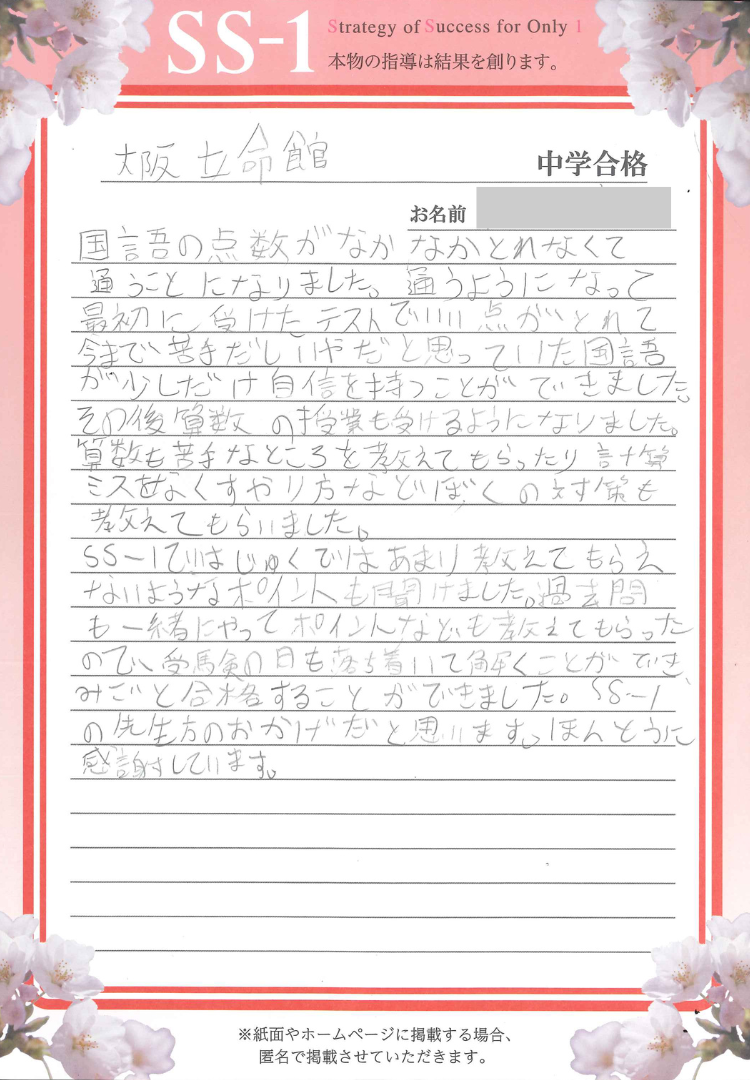 SS-1 Strategy of Success for Only 1
本物の指導は結果を創ります。
大阪立命館 中学合格
お名前
国語の点数がなかなかとれなくて
通うことになりました。通うようになって
最初に受けたテストでいい点がとれて
今まで苦手だしいやだと思っていた国語
が少しだけ自信を持つことができました。
その後算数の授業も受けるようになりました。
算数も苦手なところを教えてもらったり計算
ミスをなくすやり方などぼくの対策も
教えてもらいました。
SS-1ではじゅくではあまり教えてもらえ
ないようなポイントも聞けました。過去問
も一緒にやってポイントなども教えてもらった
ので、受験の日も落ち着いて解くことができ、
みごと合格することができました。SS-1
の先生方のおかげだと思います。ほんとうに
感謝しています。
※紙面やホームページに掲載する場合、
匿名で掲載させていただきます。